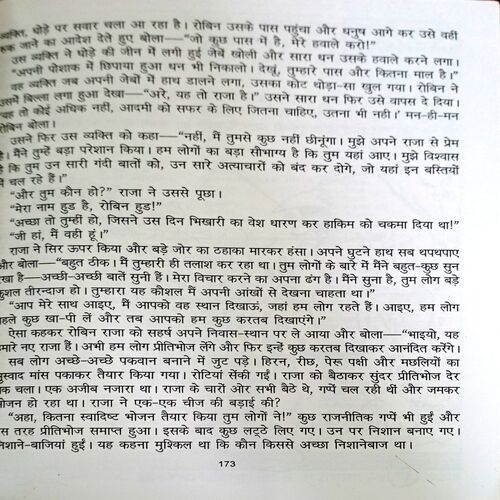 व्यक्ति, घोड़े पर सवार चला आ रहा है। रोबिन उसके पास पहुंचा और धनुष आगे कर उसे वहीं
रुक जाने का आदेश देते हुए बोला—“जो कुछ पास में है, मेरे हवाले करो!”
उस व्यक्ति ने घोड़े की जीन में लगी हुई जेबें खोली और सारा धन उसके हवाले करने लगा।
“अपनी पोशाक में छिपाया हुआ धन भी निकालो। देखूं, तुम्हारे पास और कितना माल है।”
वह व्यक्ति जब अपनी जेबों में हाथ डालने लगा, उसका कोट थोड़ा-सा खुल गया। रोबिन ने
उसमें बिल्ला लगा हुआ देखा—“अरे, यह तो राजा है।” उसने सारा धन फिर उसे वापस दे दिया।
यह तो कोई अधिक नहीं, आदमी को सफर के लिए जितना चाहिए, उतना भी नहीं।’ मन-ही-मन
रोबिन बोला।
उसने फिर उस व्यक्ति को कहा—“नहीं, मैं तुमसे कुछ नहीं छीनूंगा। मुझे अपने राजा से प्रेम
है। मैंने तुम्हें बड़ा परेशान किया। हम लोगों का बड़ा सौभाग्य है कि तुम यहां आए। मुझे विश्वास
है कि तुम उन सारी गंदी बातों को, उन सारे अत्याचारों को बंद कर दोगे, जो यहां इन बस्तियों
में चल रहे हैं।”
“और तुम कौन हो?” राजा ने उससे पूछा।
“मेरा नाम हुड है, रोबिन हुड!”
“अच्छा तो तुम्हीं हो, जिसने उस दिन भिखारी का वेश धारण कर हाकिम को चकमा दिया था!”
“जी हां, मैं वही हूं।”
राजा ने सिर ऊपर किया और बड़े जोर का ठहाका मारकर हंसा। अपने घुटने हाथ सब थपथपाए
और बोला—“बहुत ठीक। मैं तुम्हारी ही तलाश कर रहा था। तुम लोगों के बारे में मैंने बहुत-कुछ सुन
रखा है—अच्छी-अच्छी बातें सुनी हैं। मेरा विचार करने का अपना ढंग है। मैंने सुना है, तुम लोग बड़े
कुशल तीरन्दाज हो। तुम्हारा यह कौशल मैं अपनी आंखों से देखना चाहता था।”
“आप मेरे साथ आइए, मैं आपको वह स्थान दिखाऊं, जहां हम लोग रहते हैं। आइए, हम लोग
पहले कुछ खा-पी लें और तब आपको हम कुछ करतब दिखाएंगे।”
ऐसा कहकर रोबिन राजा को सहर्ष अपने निवास-स्थान पर ले आया और बोला—“भाइयो, यह
हमारे नए राजा हैं। अभी हम लोग प्रीतिभोज लेंगे और फिर इन्हें कुछ करतब दिखाकर आनंदित करेंगे।
सब लोग अच्छे-अच्छे पकवान बनाने में जुट पड़े। हिरन, रीछ, पेस पक्षी और मछलियों का
सुस्वाद मांस पकाकर तैयार किया गया। रोटियां सेंकी गईं। राजा को बैठाकर सुंदर प्रीतिभोज देर
तक चला। एक अजीब नजारा था। राजा के चारों ओर सभी बैठे थे, गप्पें चल रही थीं और जमकर
भोजन हो रहा था। राजा ने एक-एक चीज की बड़ाई की?
“अहा, कितना स्वादिष्ट भोजन तैयार किया तुम लोगों ने!” कुछ राजनीतिक गप्पें भी हुईं और
इस तरह प्रीतिभोज समाप्त हुआ। इसके बाद कुछ लट्ठे लिए गए। उन पर निशान बनाए गए।
निशाने-बाजियां हुईं। यह कहना मुश्किल था कि कौन किससे अच्छा निशानेबाज था।
173